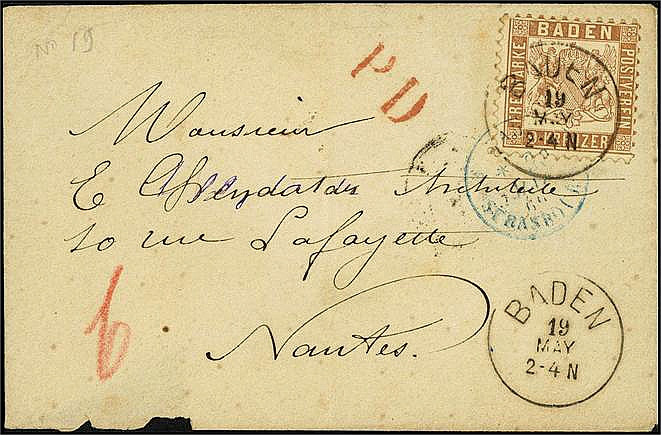 No 19
PD
BADEN
FREIMARKE
POSTVEREIN
BADEN
19
MAY
2-4 N
STRASBO
Monsieur
E Architecte
10 rue Lafayette
Nantes.
6
BADEN
19
MAY
2-4 N